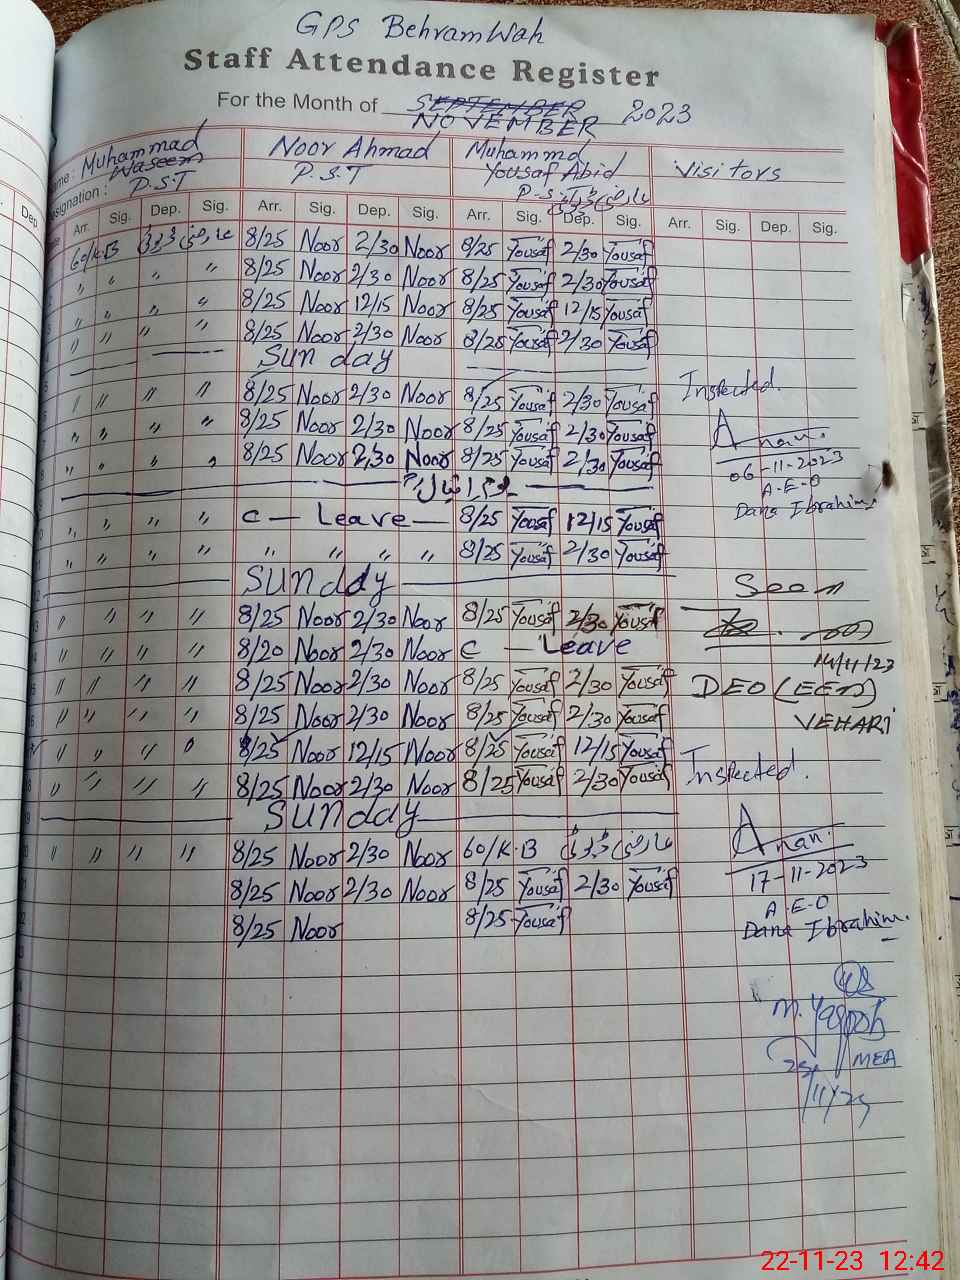 GPS BehramWah
Staff Attendance Register
For the Month of SEPTEMBER NOVEMBER 2023
Name: Muhammad Waseem Noor Ahmad Muhammd Yousaf Abid Visitors
Designation: P.S.T P.S.T P.S.T عارضی ڈیوٹی
Dep. Arr. Sig. Dep. Sig. Arr. Sig. Dep. Sig. Arr. Sig. Dep. Sig. Arr. Sig. Dep. Sig.
60/K.B عارضی ڈیوٹی 8/25 Noor 2/30 Noor 8/25 Yousaf 2/30 Yousaf
" " " 8/25 Noor 2/30 Noor 8/25 Yousaf 2/30 Yousaf
" " " " 8/25 Noor 12/15 Noor 8/25 Yousaf 12/15 Yousaf
" " " " 8/25 Noor 2/30 Noor 8/25 Yousaf 2/30 Yousaf
Sunday
" " " " 8/25 Noor 2/30 Noor 8/25 Yousaf 2/30 Yousaf
" " " " 8/25 Noor 2/30 Noor 8/25 Yousaf 2/30 Yousaf
" " " " 8/25 Noor 2/30 Noor 8/25 Yousaf 2/30 Yousaf
یوم اقبال
" " " " C — Leave — 8/25 Yousaf 12/15 Yousaf
" " " " " " " " 8/25 Yousaf 2/30 Yousaf
Sunday
" " " " 8/25 Noor 2/30 Noor 8/25 Yousaf 2/30 Yousaf
" " " " 8/20 Noor 2/30 Noor C — Leave
" " " " 8/25 Noor 2/30 Noor 8/25 Yousaf 2/30 Yousaf
" " " " 8/25 Noor 2/30 Noor 8/25 Yousaf 2/30 Yousaf
" " " " 8/25 Noor 12/15 Noor 8/25 Yousaf 12/15 Yousaf
" " " " 8/25 Noor 2/30 Noor 8/25 Yousaf 2/30 Yousaf
Sunday
" " " " 8/25 Noor 2/30 Noor 60/K.B عارضی ڈیوٹی
8/25 Noor 2/30 Noor 8/25 Yousaf 2/30 Yousaf
8/25 Noor 8/25 Yousaf
Inspected.
06-11-2023
A.E.O
Dana Ibrahim.
Seen
14/11/23
DEO (EE-M)
VEHARI
Inspected.
17-11-2023
A.E.O
Dana Ibrahim.
M. Yaqoob
MEA
22-11-23 12:42